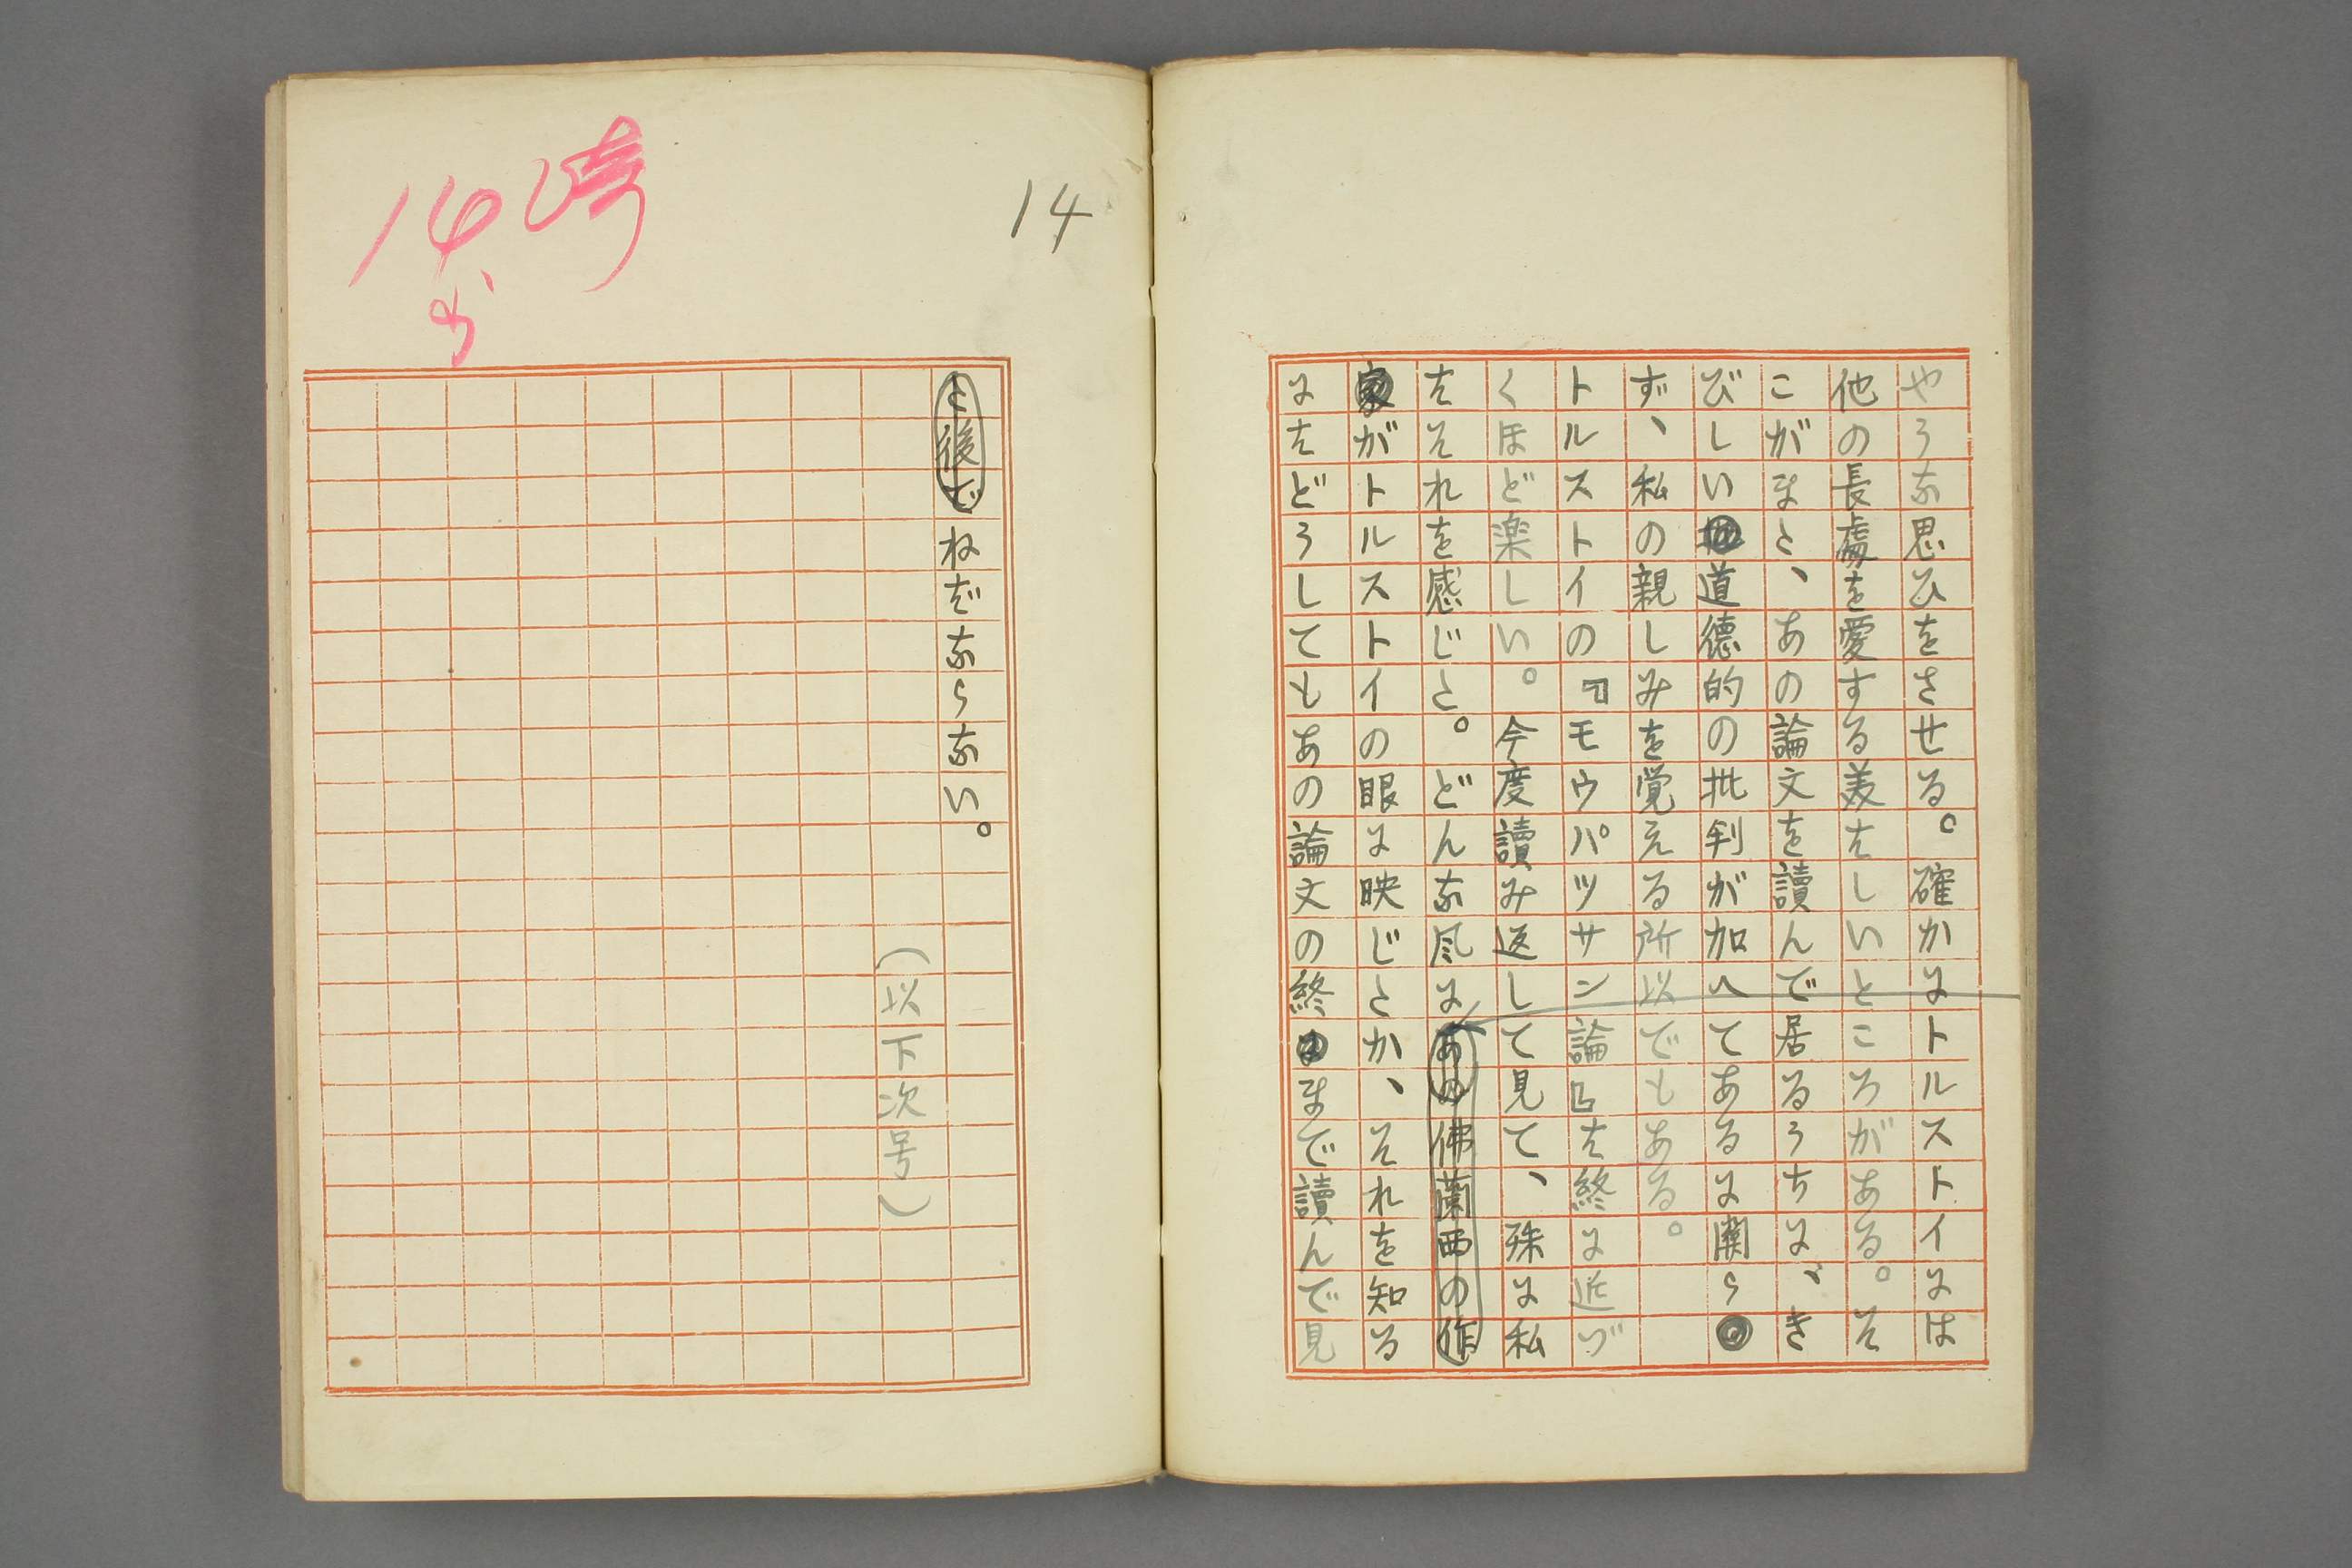 やうな思ひをさせる。確かにトルストイには
他の長處を愛する美はしいところがある。そ
こがまた、あの論文を讀んで居るうちに、き
びしい道徳的の批判が加へてあるに関ら
ず、私の親しみを覚える所以でもある。
トルストイの『モウパツサン論』は終に近づ
くほど楽しい。今度讀み返して見て、殊に私
はそれを感じた。どんな風にあの佛蘭西の作
家がトルストイの眼に映じたか、それを知る
にはどうしてもあの論文の終まで讀んで見
14
た後でねばならない。
(以下次号)